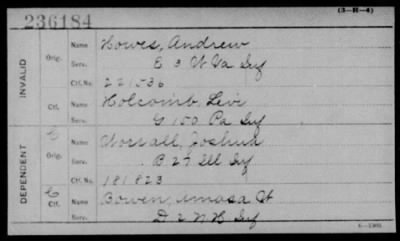 (3-H-4)
236184
INVALID
Orig.
Name Howes, Andrew
Serv. E 3 W Va Inf
Ctf. No. 221536
Ctf.
Name Holcomb, Levi
Serv. G 150 Pa Inf
DEPENDENT
C
Orig.
Name Joshua
Serv. B 27 Ill Inf
Ctf. No. 181823
C
Ctf.
Name Bowen, Amasa W
Serv. D 2 N H Inf